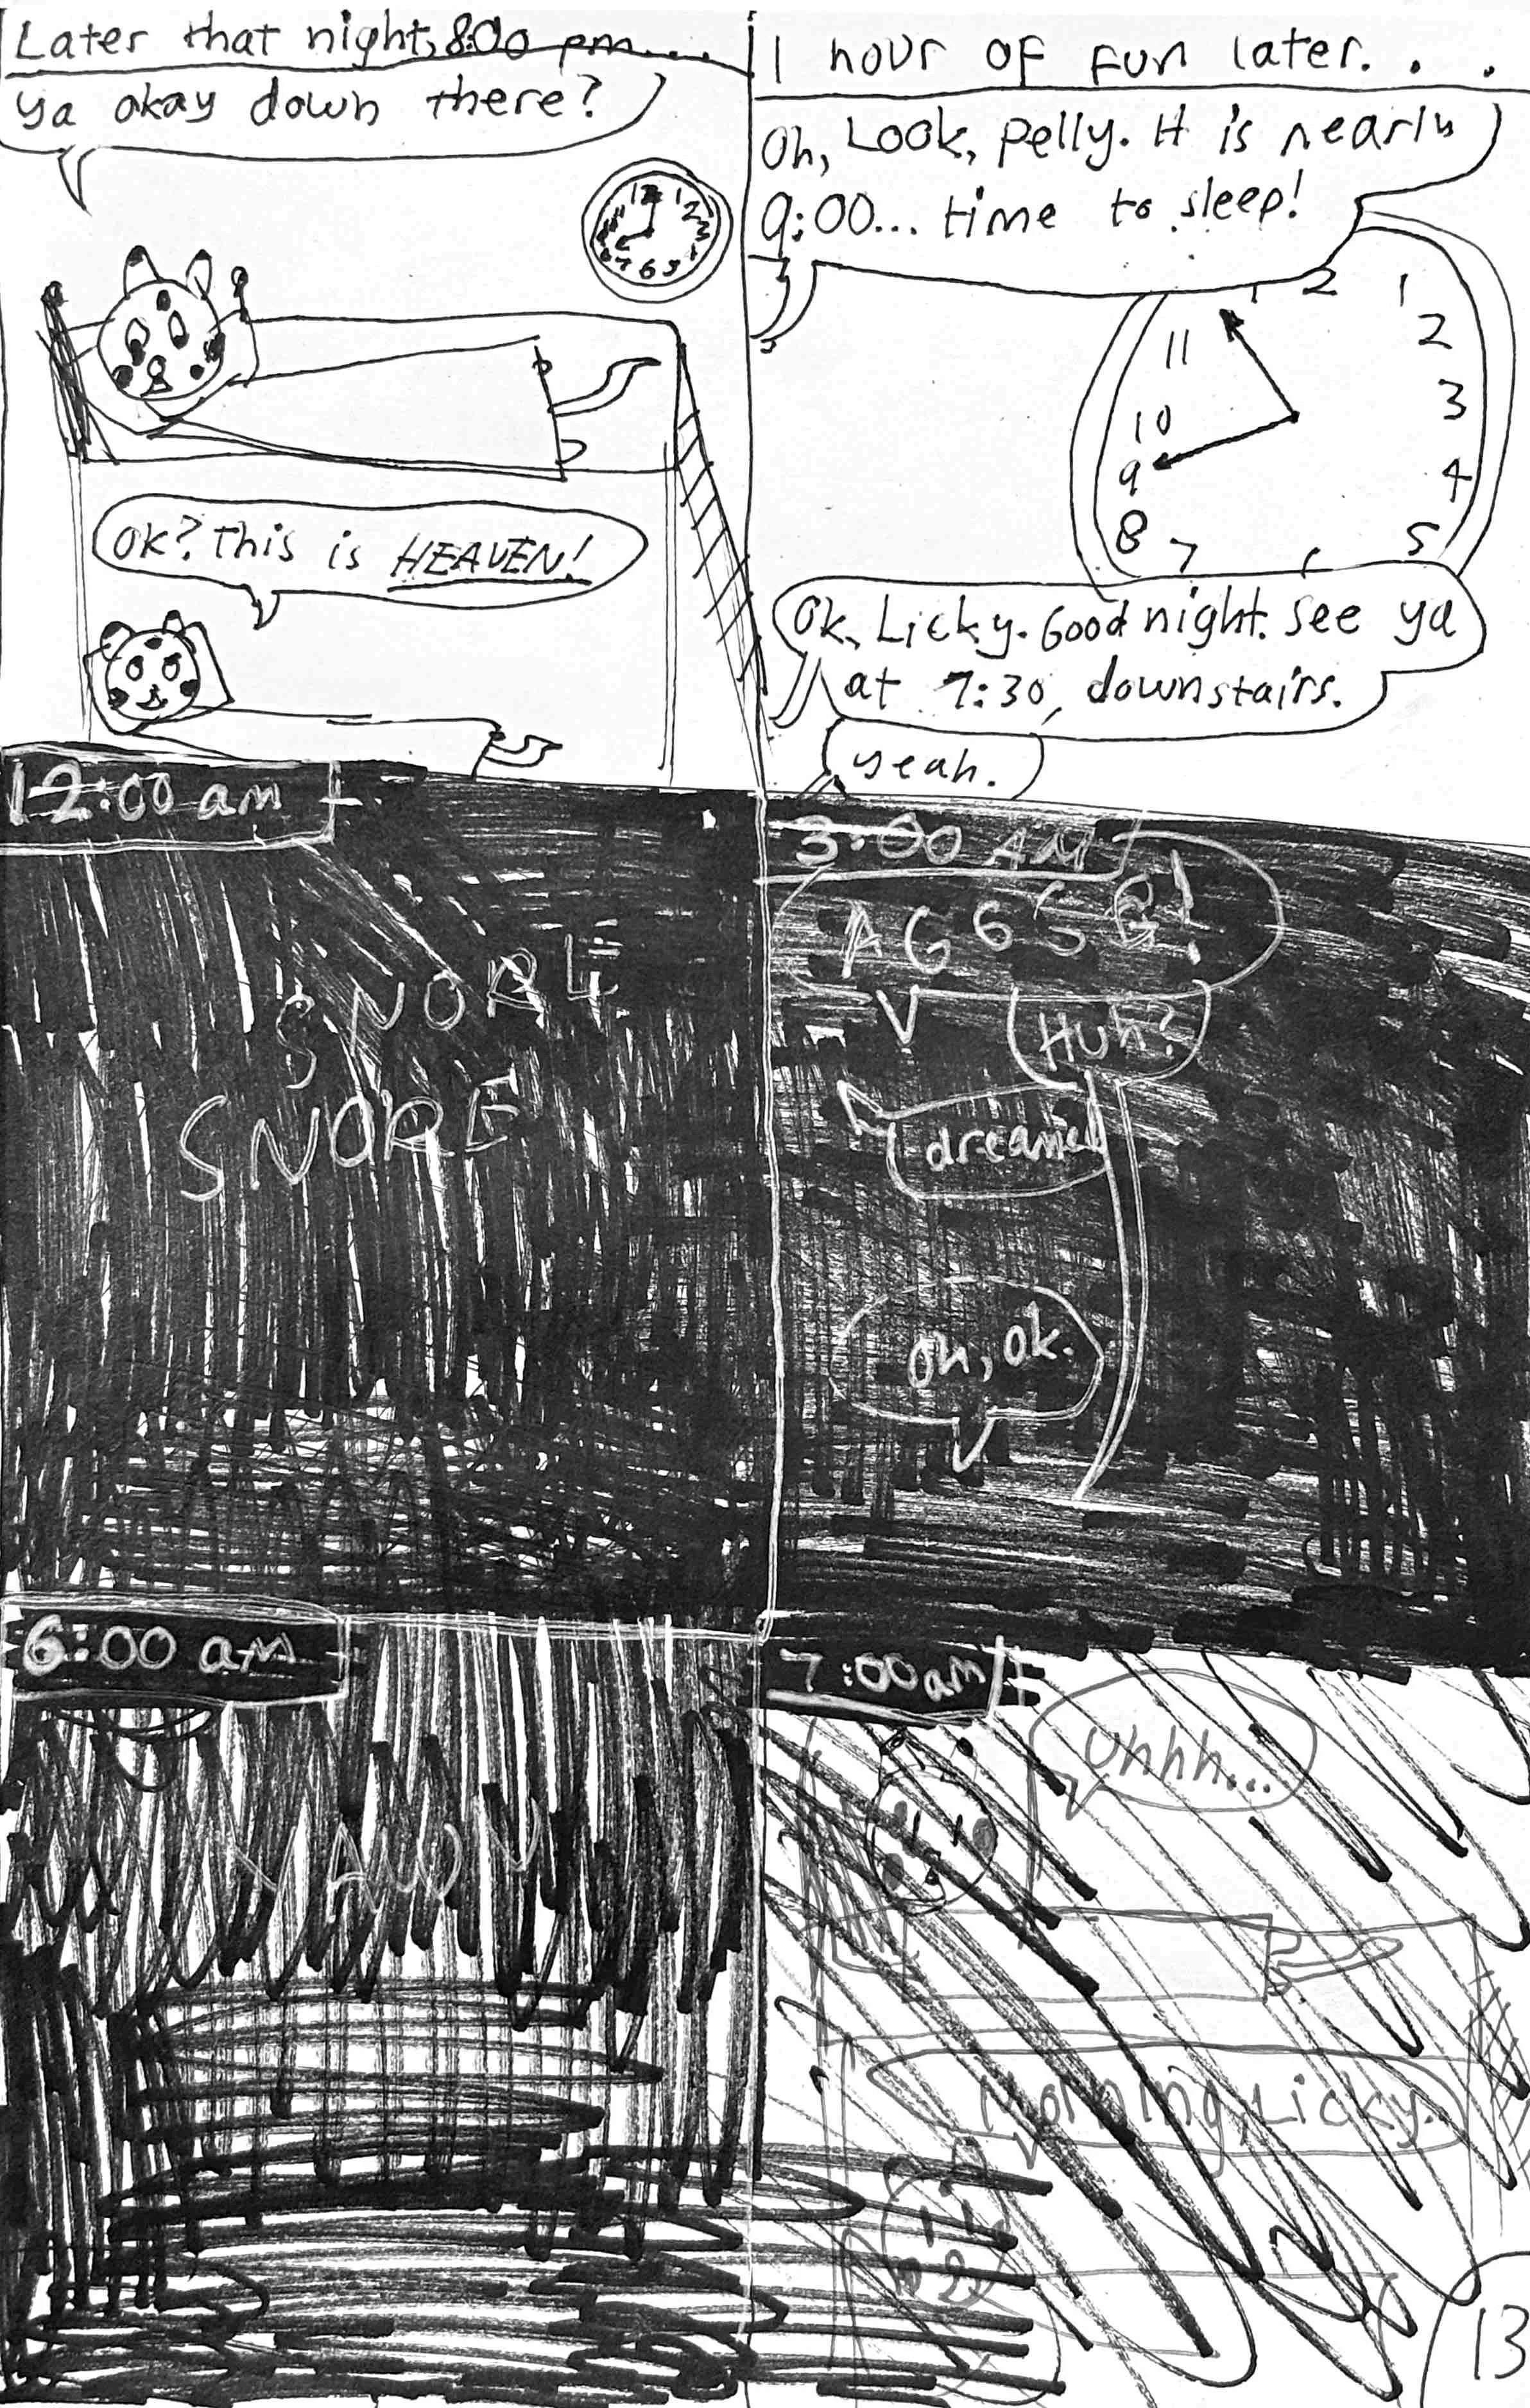 Later that night, 8:00 pm...
ya okay down there?
12 1 2 3 5 6 7
OK? This is HEAVEN!
1 hour of fun later...
Oh, Look, Pelly. It is nearly
9:00... time to sleep!
1 2 1
11 2
10 3
9 4
8 7 5
Ok, Licky. Good night. See ya
at 7:30, downstairs.
yeah.
12:00 am
SNORE
SNORE
3:00 AM
Huh?
dreamed
Oh, ok.
6:00 am
YAWN
7:00 am
Uhhh...
Morning, Licky.
13